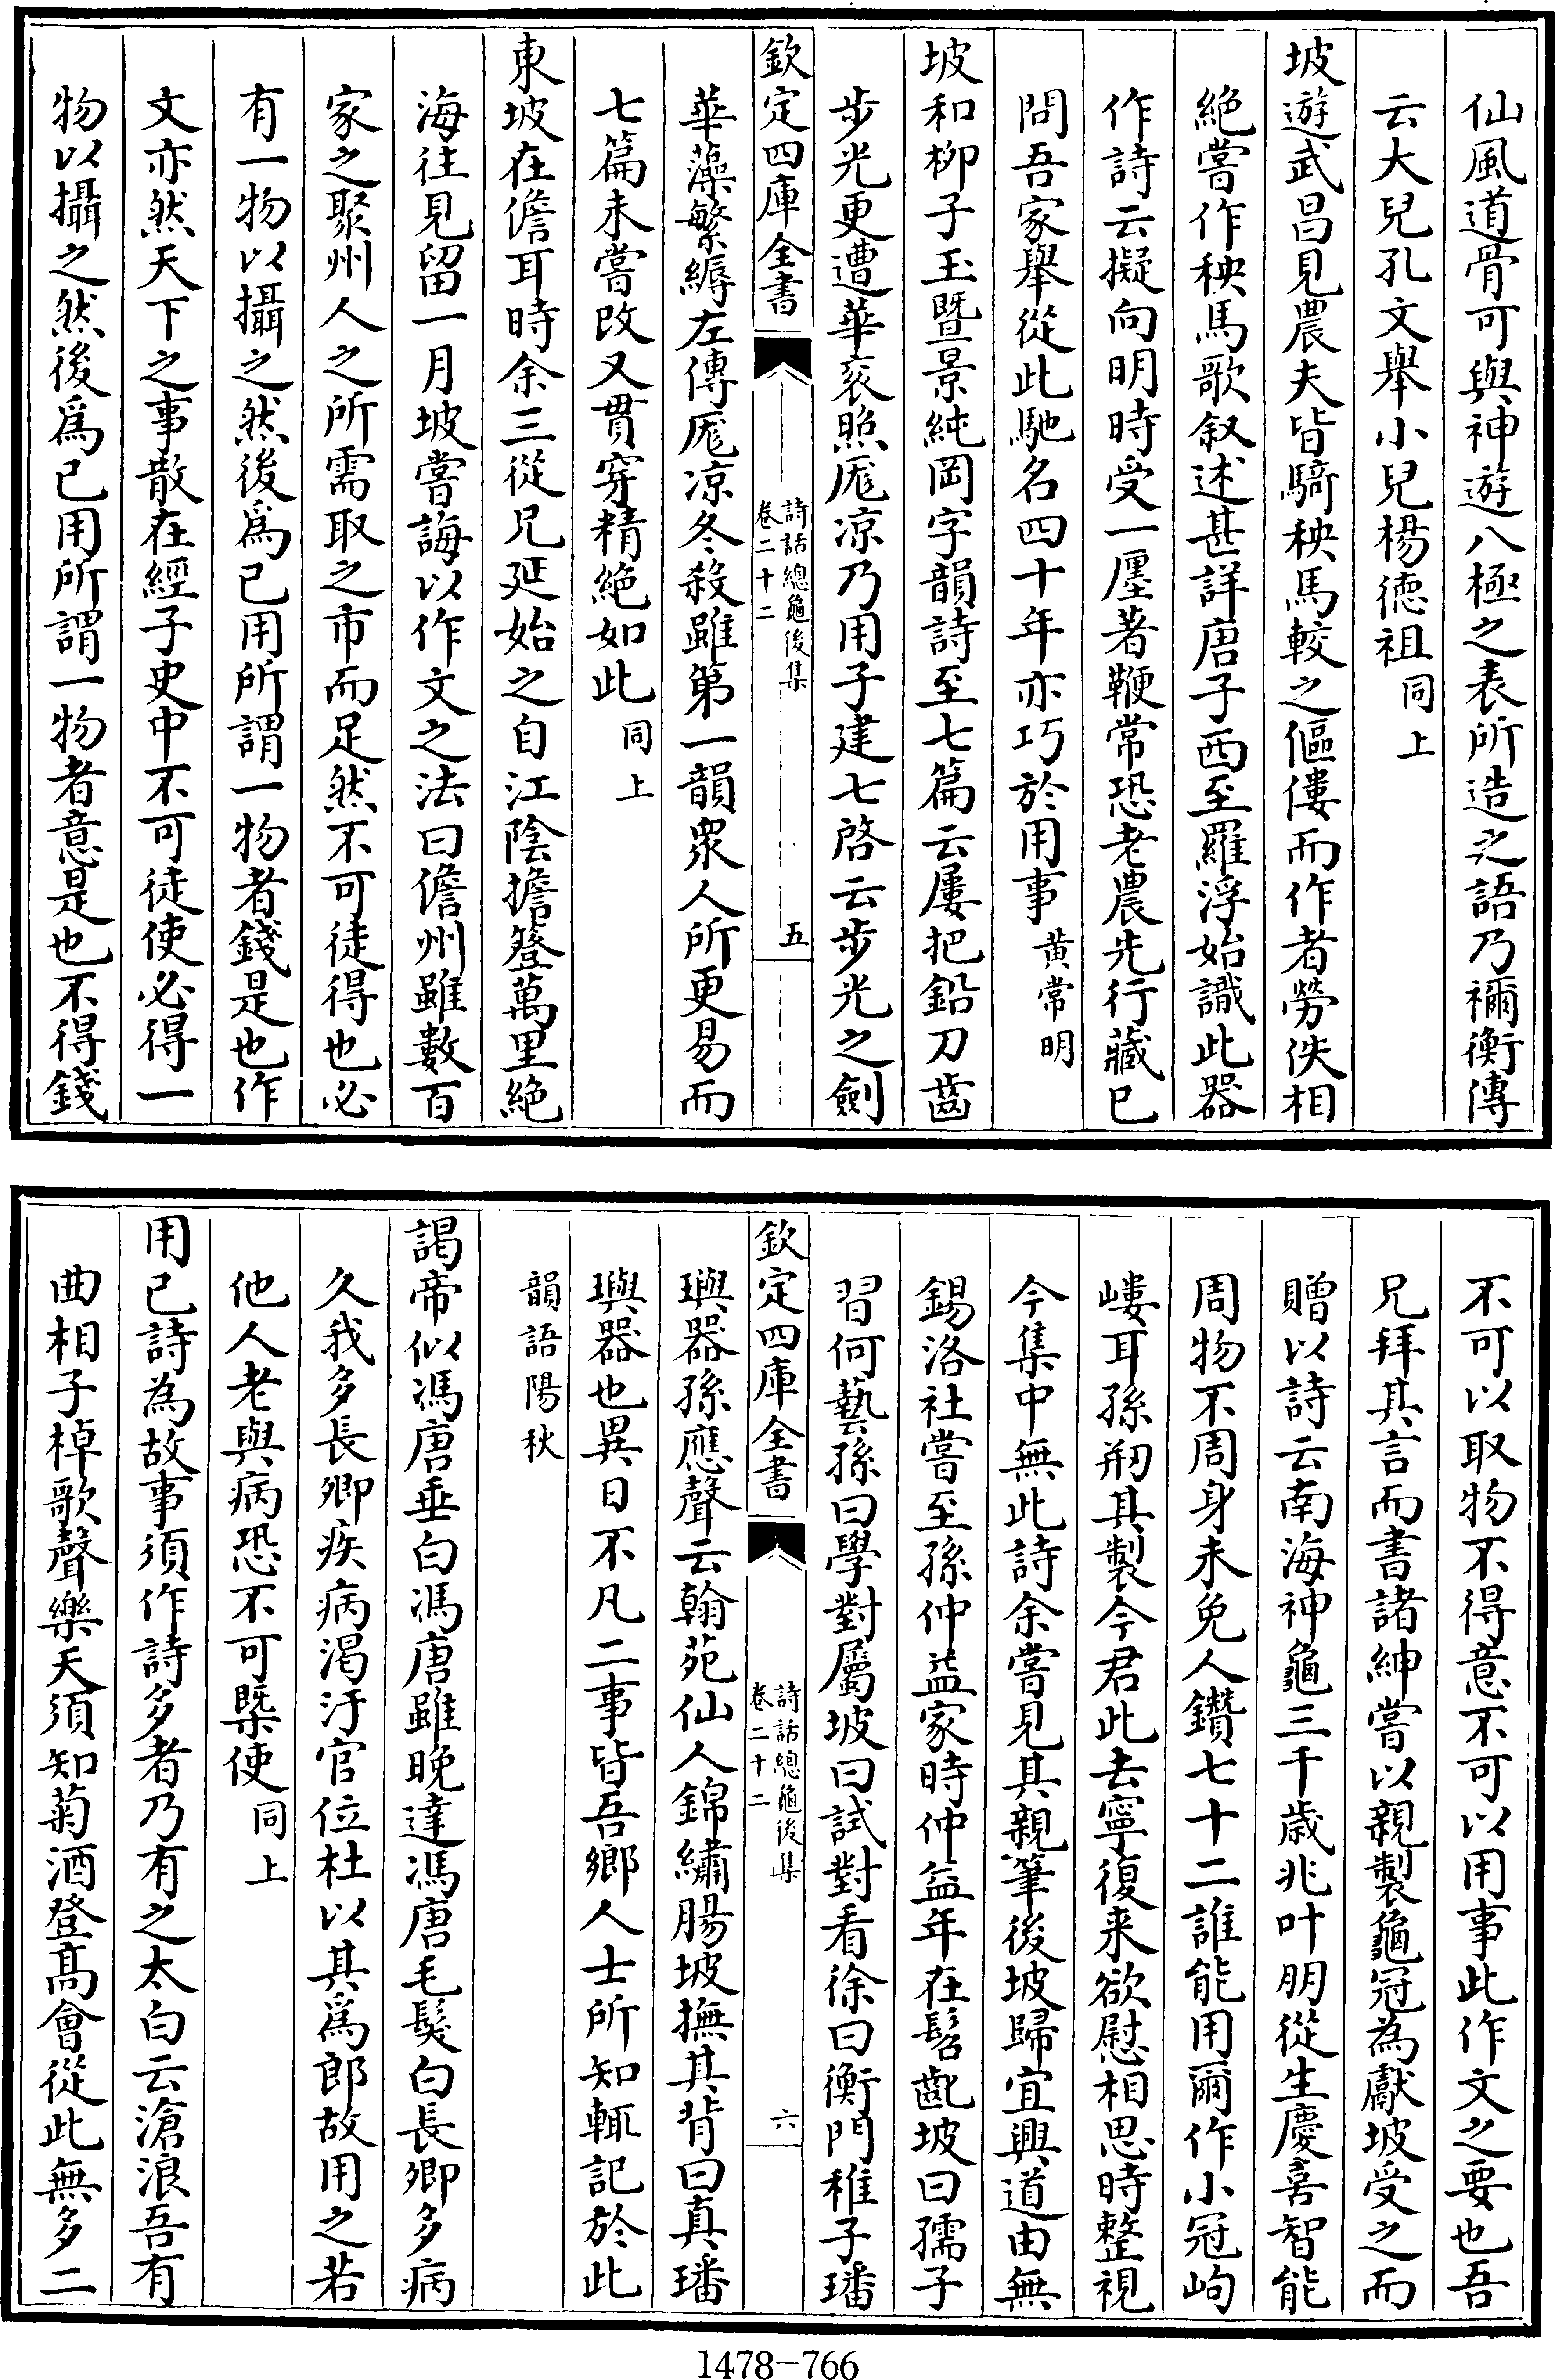 仙風道骨可與神遊八極之表所造之語乃禰衡傳
云大兒孔文舉小兒楊德祖同上
坡遊武昌見農夫皆騎秧馬較之傴僂而作者勞佚相
絶嘗作秧馬歌叙述甚詳唐子西至羅浮始識此器
作詩云擬向明時受一廛著鞭常恐老農先行藏已
問吾家舉從此馳名四十年亦巧於用事黄常明
坡和柳子玉暨景純岡字韻詩至七篇云屢把鉛刀齒
步光更遭華衮照厖凉乃用子建七啓云步光之劍
欽定四庫全書
詩話總龜後集
卷二十二
五
華藻繁縟左傳厖凉冬殺雖第一韻衆人所更易而
七篇未嘗改又貫穿精絶如此同上
東坡在儋耳時余三從兄延始之自江陰擔簦萬里絶
海往見留一月坡嘗誨以作文之法曰儋州雖數百
家之聚州人之所需取之市而足然不可徒得也必
有一物以攝之然後爲已用所謂一物者錢是也作
文亦然天下之事散在經子史中不可徒使必得一
物以攝之然後爲已用所謂一物者意是也不得錢
不可以取物不得意不可以用事此作文之要也吾
兄拜其言而書諸紳嘗以親製龜冠為獻坡受之而
贈以詩云南海神龜三千歲兆叶朋從生慶喜智能
周物不周身未免人鑽七十二誰能用爾作小冠岣
嶁耳孫刱其製今君此去寧復来欲慰相思時整視
今集中無此詩余嘗見其親筆後坡歸宜興道由無
錫洛社嘗至孫仲益家時仲益年在髫齔坡曰孺子
習何藝孫曰學對屬坡曰試對看徐曰衡門稚子璠
欽定四庫全書
詩話總龜後集
卷二十二
六
璵器孫應聲云翰苑仙人錦繡腸坡撫其背曰真璠
璵器也異日不凡二事皆吾鄉人士所知輒記於此
韻語陽秋
謁帝似馮唐垂白馮唐雖晚達馮唐毛髮白長卿多病
久我多長卿疾病渴汙官位杜以其爲郎故用之若
他人老與病恐不可槩使同上
用已詩為故事須作詩多者乃有之太白云滄浪吾有
曲相子棹歌聲樂天須知菊酒登髙會從此無多二
1478-766